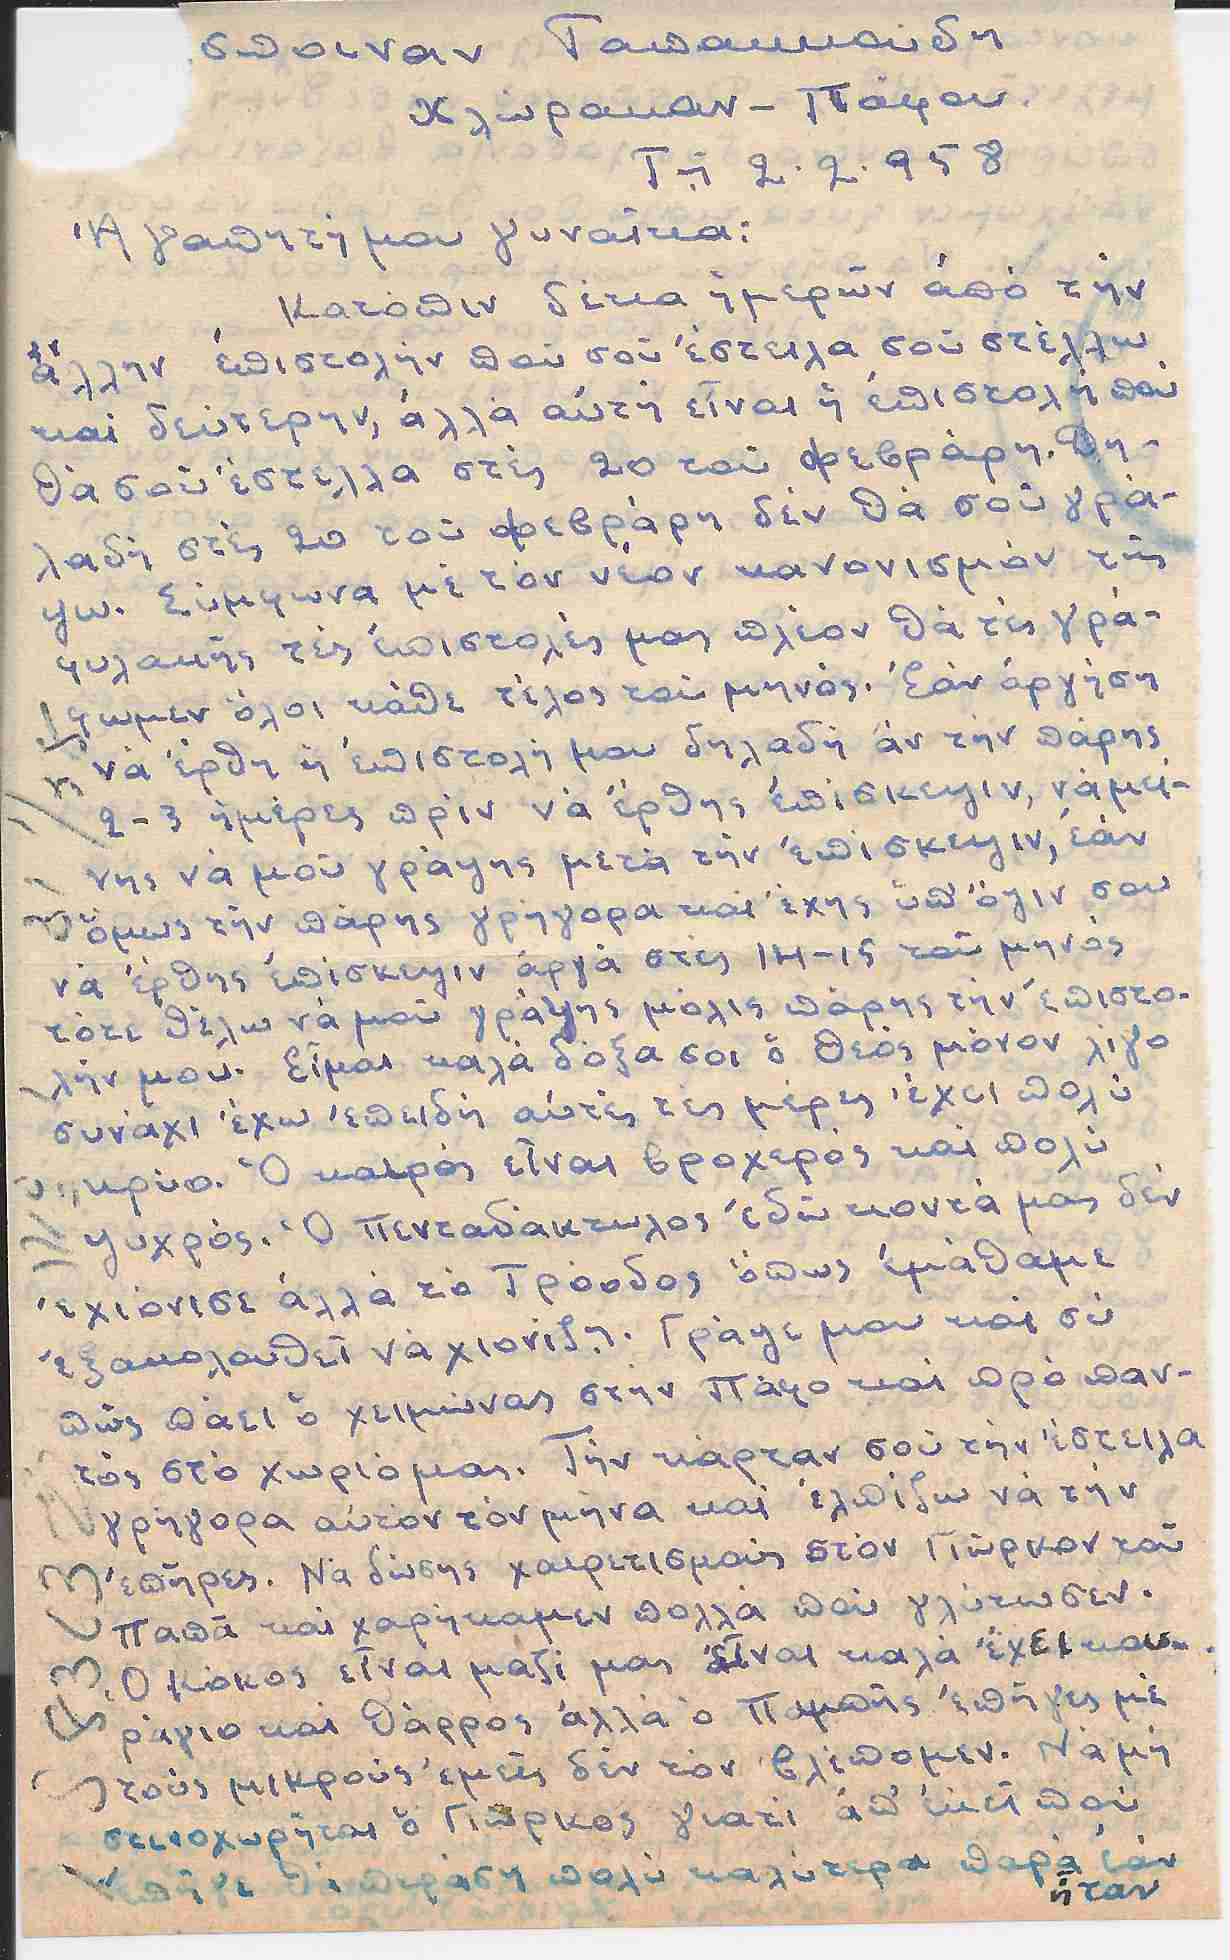 σποιναν Ταπακκούδη
Χλώρακαν - Πάφου.
Τῇ 2. 2. 958
Ἀγαπητή μου γυναῖκα:
Κατόπιν δέκα ἡμερῶν ἀπό τήν
ἄλλην ἐπιστολήν πού σοῦ ἔστειλα σοῦ στέλλω
καί δεύτερην, ἀλλά αὐτή εἶναι ἡ ἐπιστολή πού
θά σοῦ ἔστελλα στές 20 τοῦ Φεβράρη. Δη-
λαδή στές 20 τοῦ Φεβράρη δέν θά σοῦ γρά-
ψω. Σύμφωνα μέ τόν νέον κανονισμόν τῆς
φυλακῆς τές ἐπιστολές μας πλέον θά τές γρά-
φωμεν ὅλοι κάθε τέλος τοῦ μηνός. Ἐάν ἀργήση
νά ἔρθη ἡ ἐπιστολή μου δηλαδή ἄν τήν πάρης
2-3 ἡμέρες πρίν νά ἔρθης ἐπίσκεψιν, νά μεί-
νης νά μοῦ γράψης μετά τήν ἐπίσκεψιν, ἐάν
ὅμως τήν πάρης γρήγορα καί ἔχης ὑπ' ὄψιν σου
νά ἔρθης ἐπίσκεψιν ἀργά στές 14-15 τοῦ μηνός
τότε θέλω νά μοῦ γράψης μόλις πάρης τήν ἐπιστο-
λήν μου. Εἶμαι καλά δόξα σοι ὁ Θεός μόνον λίγο
συνάχι ἔχω ἐπειδή αὐτές τές μέρες ἔχει πολύ
κρύο. Ὁ καιρός εἶναι βροχερός καί πολύ
ψυχρός. Ὁ Πενταδάκτωλος ἐδῶ κοντά μας δέν
ἐχιόνισε ἀλλά τό Τρόοδος ὅπως ἐμάθαμε
ἐξακολουθεῖ νά χιονίζη. Γράψε μου καί σύ
πῶς πάει ὁ χειμώνας στήν Πάφο καί πρό παν-
τός στό χωριό μας. Τήν κάρταν σοῦ τήν ἔστειλα
γρήγορα αὐτόν τόν μήνα καί ἐλπίζω νά τήν
ἐπῆρες. Νά δώσης χαιρετισμούς στόν Γιῶρκον τοῦ
Παπᾶ καί χαρήκαμεν πολλά πού γλύτωσεν.
Ὁ Κόκος εἶναι μαζί μας εἶναι καλά ἔχει κου-
ράγιο καί θάρρος ἀλλά ὁ Παμπῆς ἐπῆγες μέ
τούς μικρούς ἐμεῖς δέν τόν βλέπομεν. Νά μή
στενοχωρῆται ὁ Γιῶρκος γιατί ἀπ' ἐκεῖ πού
ἐπῆγε θά περάση πολύ καλύτερα παρά ἐάν
ἦταν